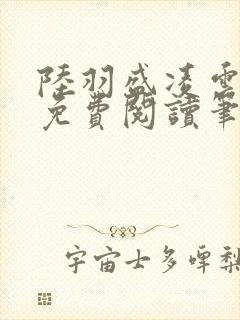 陸羽盛凌雲
免費閱讀筆
宇宙士多啤梨